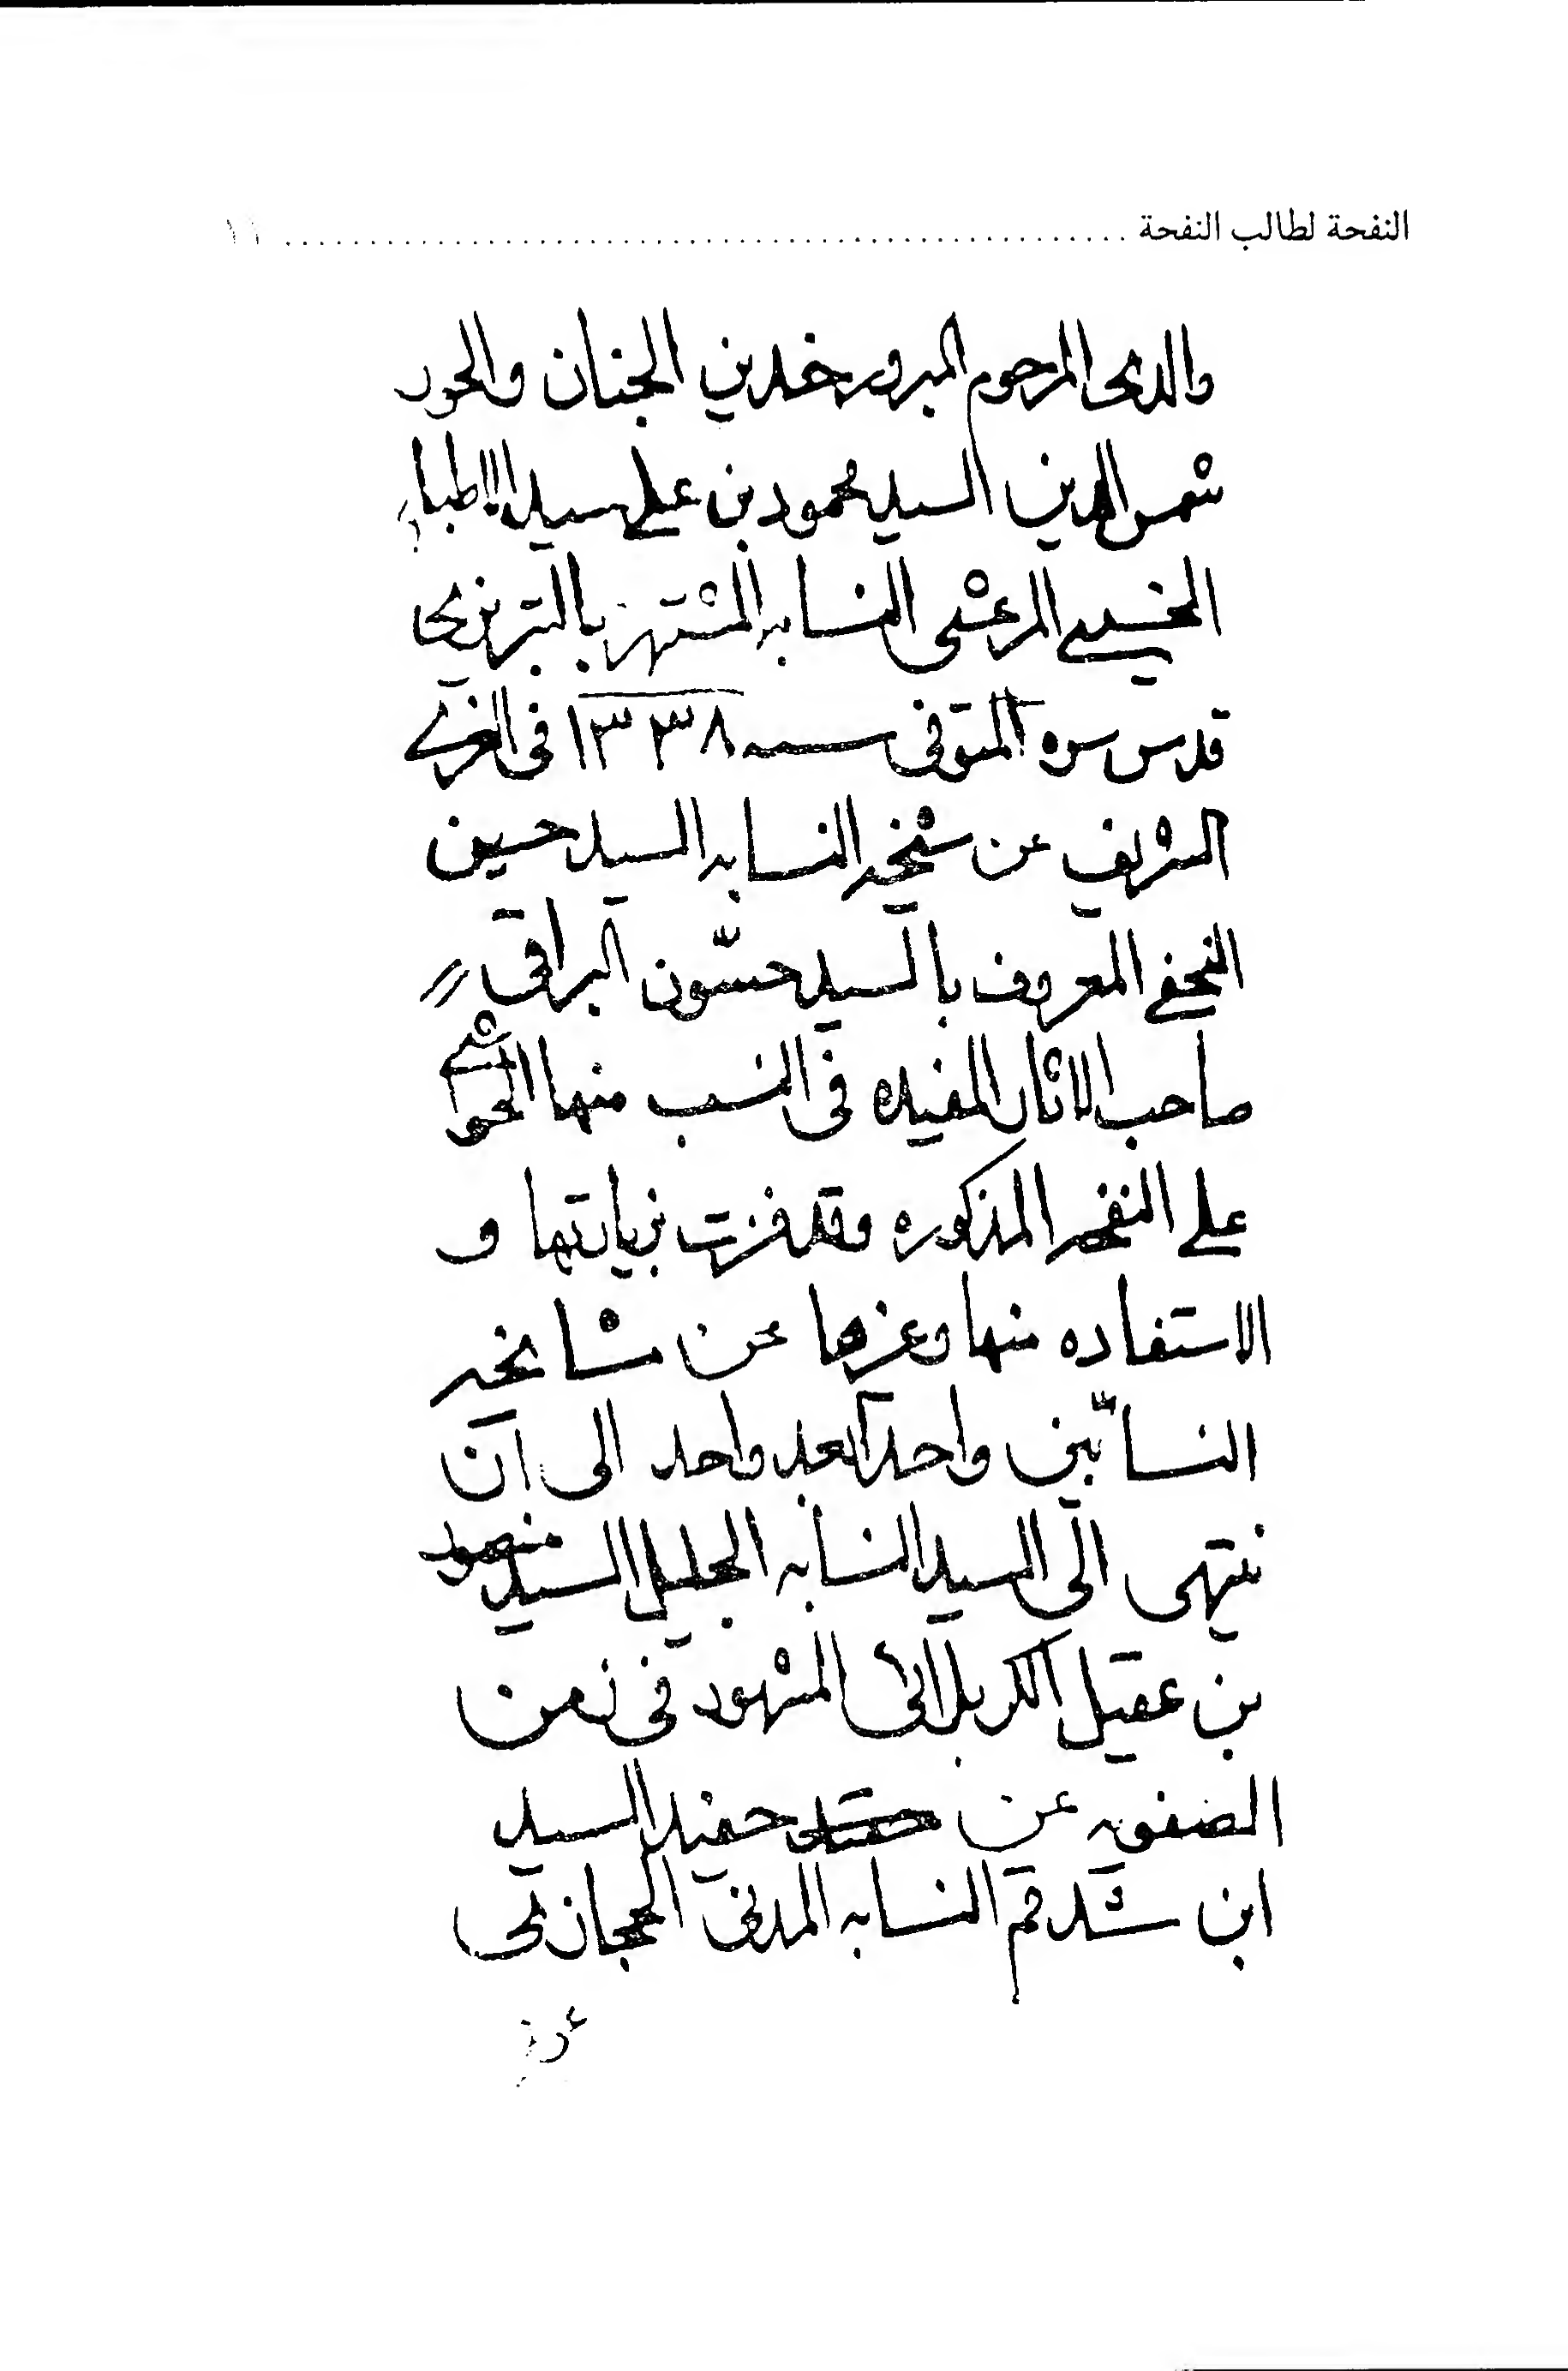 النفحة لطالب النفحة ........................................ ١١
والدى المرحوم المبرور خدين الجنان والحور
شمس الدين السيد محمود بن على سيد الاطباء
الحسينى المرعشى النسابه المشتهر بالتبريزى
قدس سره المتوفى سنه ١٣٣٨ فى الغرى
الشريف عن شيخه النسابه السيد حسين
النجفى المعروف بالسيد حسّون البراقى
صاحب الاثار المفيده فى النسب منها الحواشى
على النفحه المذكوره وقد فزت بزيارتها و
الاستفاده منها وغيرها عن مشايخه
النسابّين واحداً بعد واحد الى ان
ينتهى الى السيد النسابه الجليل السيد منصور
بن عقيل الكربلائى المشهور فى زمن
الصفويه عن حفيد السيد
ابن شدقم النسابه المدنى الحجازى